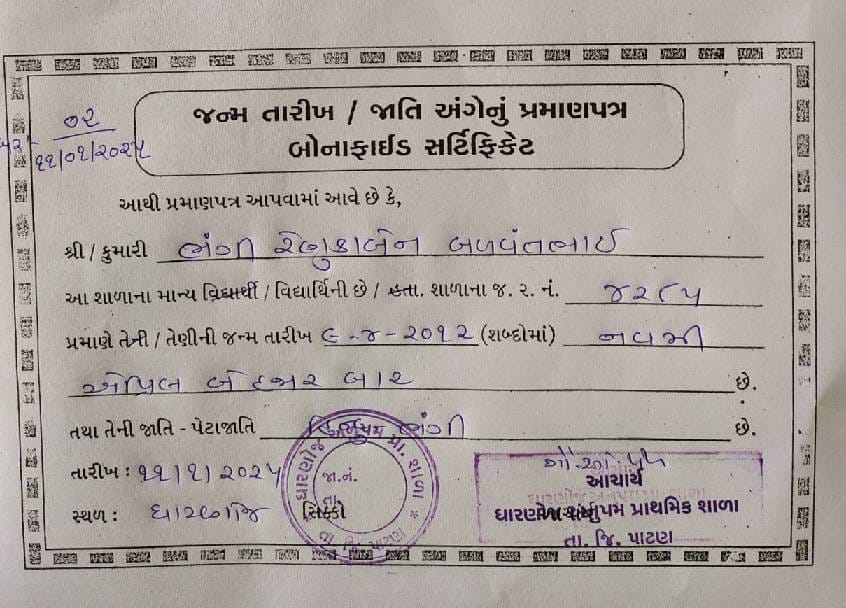 ૦૨
૧૧/૦૧/૨૦૨૫
જન્મ તારીખ / જાતિ અંગેનું પ્રમાણપત્ર
બોનાફાઈડ સર્ટિફિકેટ
આથી પ્રમાણપત્ર આપવામાં આવે છે કે,
શ્રી / કુમારી ભંગી રેણુકાબેન બળવંતભાઈ
આ શાળાના માન્ય વિદ્યાર્થી / વિદ્યાર્થિની છે / હતા. શાળાના જ. ર. નં. ૪૨૮૫
પ્રમાણે તેની / તેણીની જન્મ તારીખ ૯-૪-૨૦૧૨ (શબ્દોમાં) નવમી
એપ્રિલ બે હજાર બાર છે.
તથા તેની જાતિ - પેટાજાતિ હિન્દુ ભંગી છે.
તારીખ : ૧૧/૧/૨૦૨૫
સ્થળ : ધારણોજ
સિક્કો
જા.નં.
તા.
પ્રા. શાળા
આચાર્ય
ધારણોજ અનુપમ પ્રાથમિક શાળા
તા. જિ. પાટણ